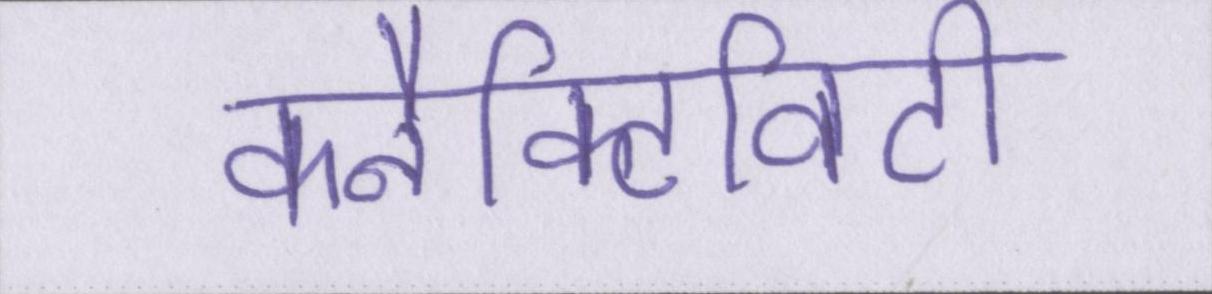 कनैक्टिविटी